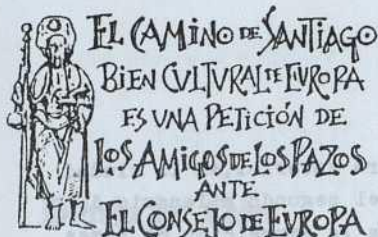 EL CAMINO DE SANTIAGO
BIEN CVLTVRAL DE EVROPA
ES UNA PETICIÓN DE
LOS AMIGOS DE LOS PAZOS
ANTE
EL CONSEJO DE EVROPA
el segundo